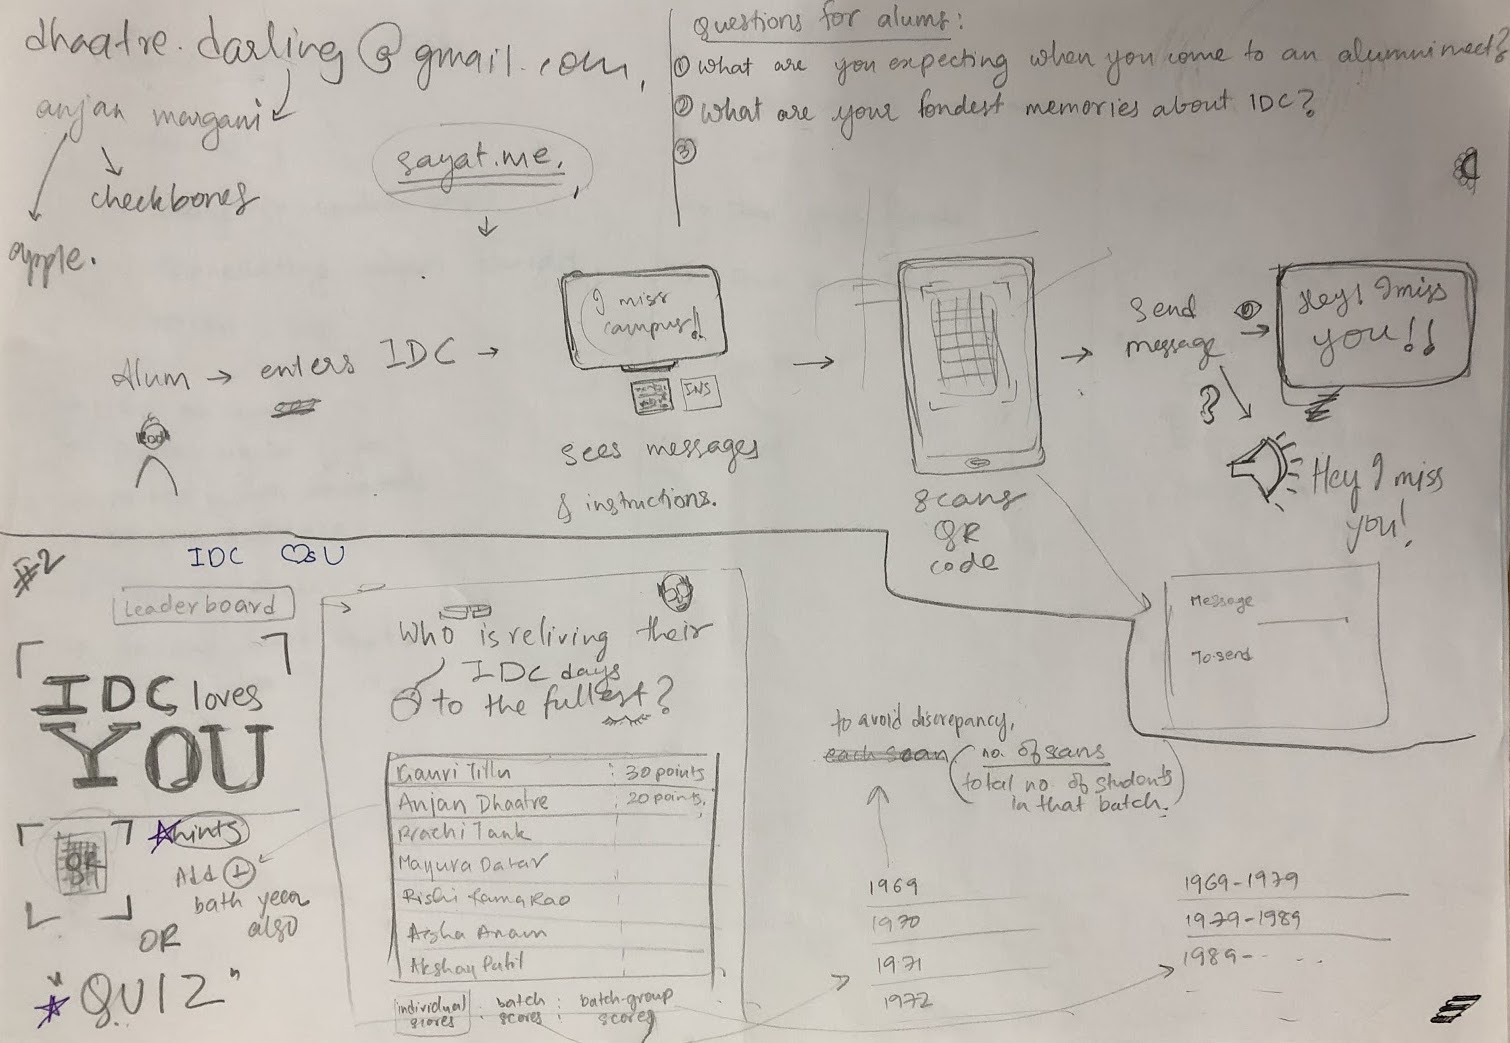 dhaatre.darling@gmail.com,
anjan margani
cheekbones
apple.
sayat.me,
Questions for alums:
① What are you expecting when you come to an alumni meet?
② What are your fondest memories about IDC?
③
Alum → enters IDC →
I miss
campus!!
INS
sees messages
& instructions.
scans
QR
code
Send
message
?
Hey! I miss
you!!
Hey I miss
you!
Message
To send
#2
IDC ♡s U
Leaderboard
IDC loves
YOU
QR
hints
Add ①
bath year
also
OR
"QUIZ"
Who is reliving their
IDC days
to the fullest?
Gauri Tillu : 30 points
Anjan Dhaatre : 20 points.
Prachi Tank
Mayura Datar
Rishi Rama Rao
Arsha Anam
Akshay Patil
individual scores : batch scores : batch-group scores
to avoid discrepancy,
each scan (no. of scans
total no. of students
in that batch.)
1969
1970
1971
1972
1969-1979
1979-1989
1989-- ...